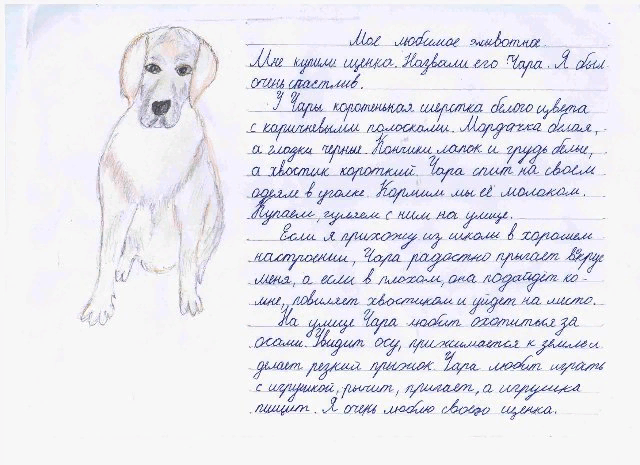 Мое любимое животное.
Мне купили щенка. Назвали его Чара. Я был
очень счастлив.
У Чары коротенькая шерстка белого цвета
с каричневыми полосками. Мордачка белая,
а глазки черные. Кончики лапок и грудь белые,
а хвостик короткий. Чара спит на своем
одеяле в уголке. Кормим мы её молоком.
Купаем, гуляем с ним на улице.
Если я прихожу из школы в хорошем
настроении, Чара радостно прыгает вокруг
меня, а если в плохом, она подайдёт ко-
мне, повиляет хвостиком и уйдет на место.
На улице Чара любит охотиться за
осами. Увидит осу, прижимается к земле и
делает резкий прыжок. Чара любит играть
с игрушкой, рычит, пригает, а игрушка
пищит. Я очень люблю своего щенка.